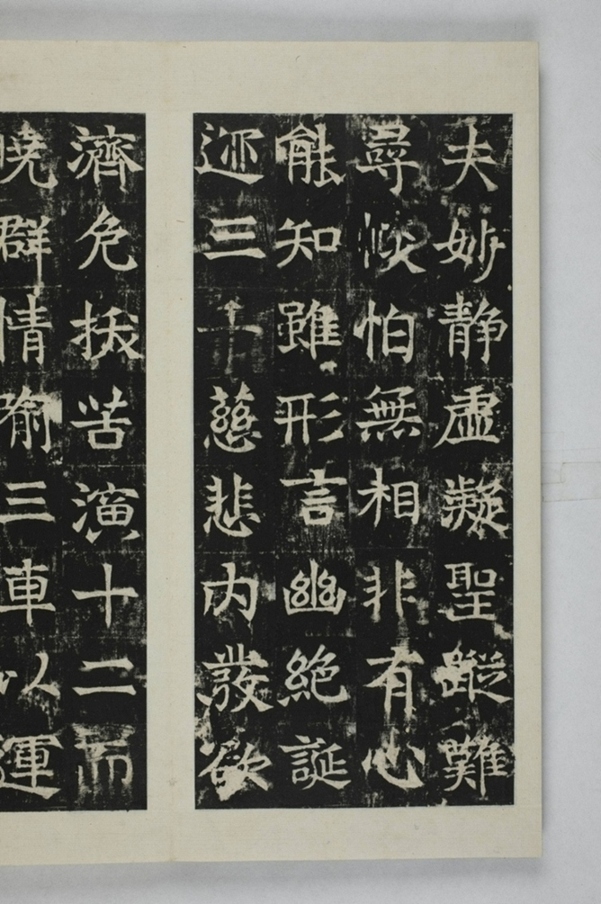 夫妙静虚凝聖蹤難
尋怕無相非有心
能知雖形言幽絶誕
迹三千慈悲内發欲
濟危扶苦演十二而
曉群情喻三車以運